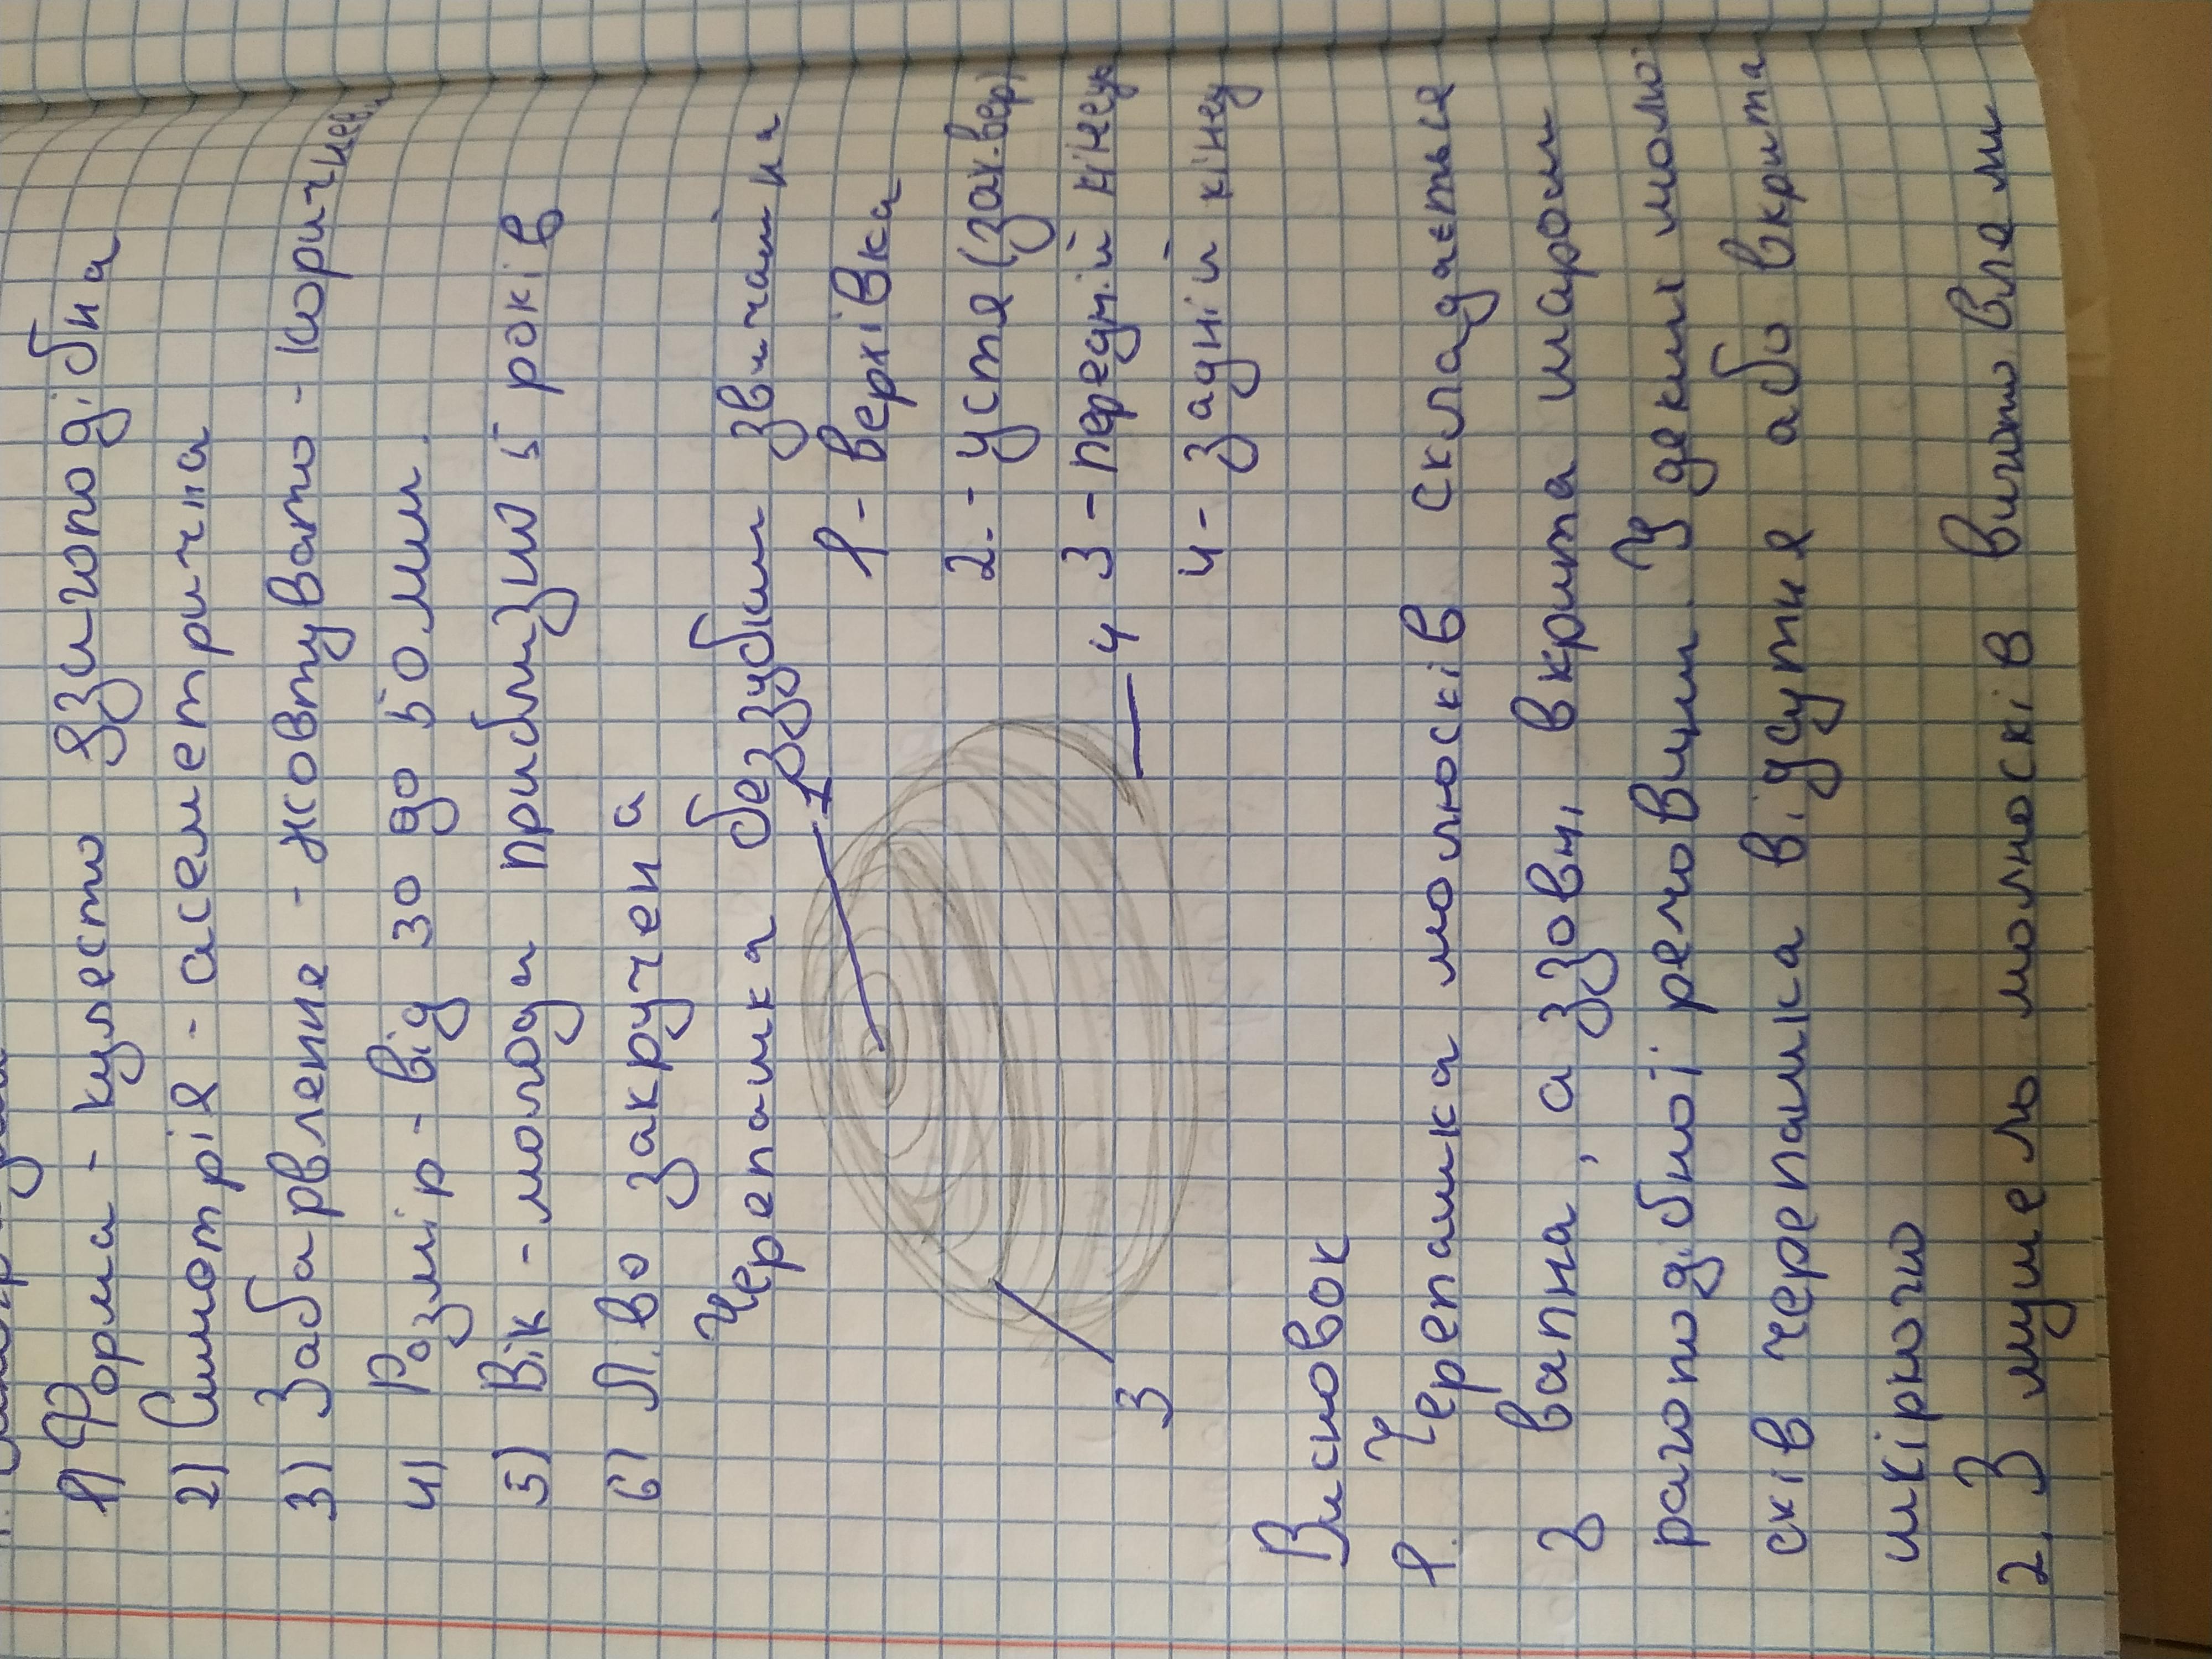 1) Форма - кулесто язигоподібна
2) Симотрія - асеметрична
3) Забарвление - жовтувато - коричнев
4) Розмір - від 30 до 50 мм.
5) Вік - молоди приблизно 5 років
6) Л. во закручена
Черепашка беззубки звичайна
1
1 - верхівка
2. - устя (зак. вер)
4
3 - передній кінець
3
4 - задній кінец
Висновок
1. Черепашка молюсків складається
з вапна, а ззовні вкрита шаром
рагоподібної речовини. У деких молю
сків черепашка відсутня або вкрита
шкірного
2. З мушель молюсків виготовлям